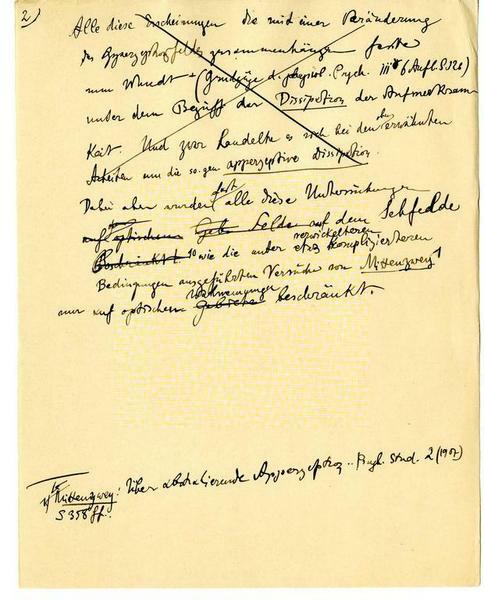 2)
Alle diese Erscheinungen die mit einer Veränderung
des Apperzeptionsfeldes zusammenhängen faste
nun Wundt (Grundzüge d. physiol. Psych. III 6 Aufl. S 326)
unter dem Begriff der Dissipation der Aufmerksam
keit. Und zwar handelte es sich bei den erwähnten
Arbeiten um die so.gen apperzeptive Dissipation.
Dabei aber wurden fast alle diese Untersuchungen
auf optischem Gebi Felde auf dem Sehfelde
Beschränkt so wie die unter verwickelteren komplizierteren
Bedingungen ausgeführten Versuche von Mittenzwey 1
nur auf optischem Wahrnehmungen Gebiete beschränkt.
1) Mittenzwey: Über abstrahierende Apperzeption.. Psych. Stud. 2 (1907)
S 358 ff.